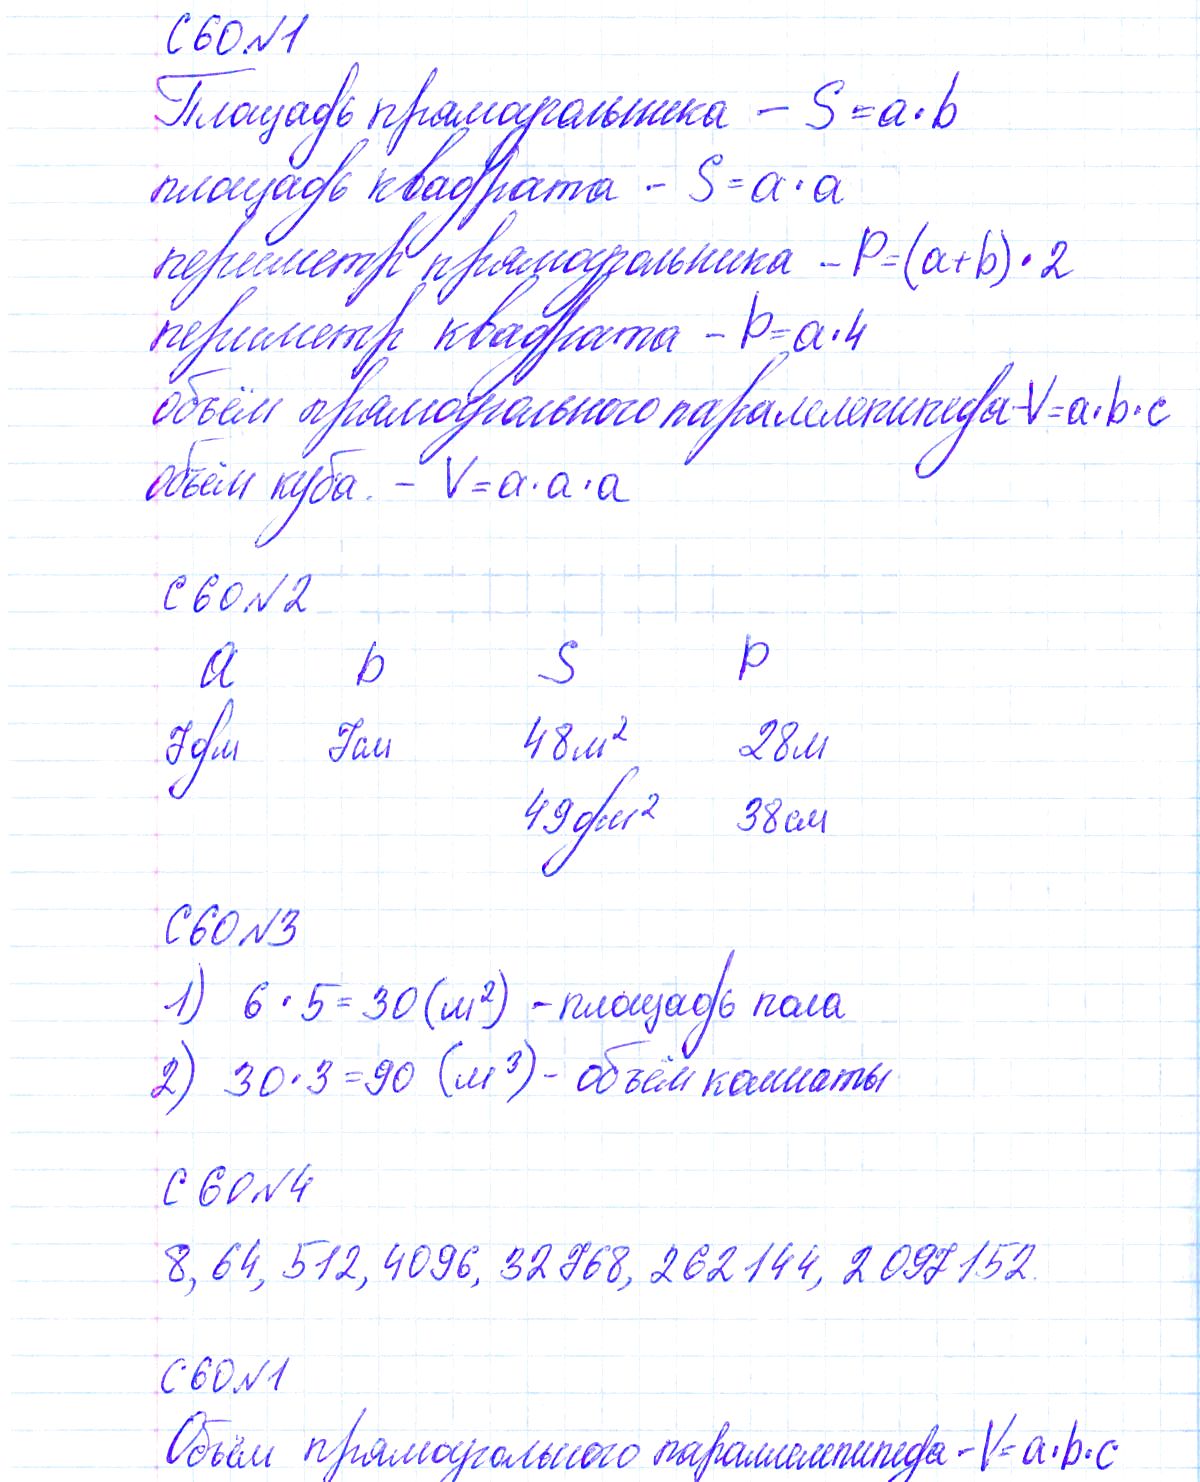 С 60 №1
Площадь прямоугольника – S = a·b
площадь квадрата – S = a·a
периметр прямоугольника – P = (a+b)·2
периметр квадрата – P = a·4
объём прямоугольного паралелепипеда – V = a·b·c
объём куба. – V = a·a·a
С 60 №2
a b S P
7дм 7см 48м² 28м
49дм² 38см
С 60 №3
1) 6·5=30(м²) – площадь пола
2) 30·3=90 (м³) – объём комнаты
С 60 №4
8, 64, 512, 4096, 32768, 262144, 2097152.
С 60 №1
Объём прямоугольного параллелепипеда – V = a·b·c